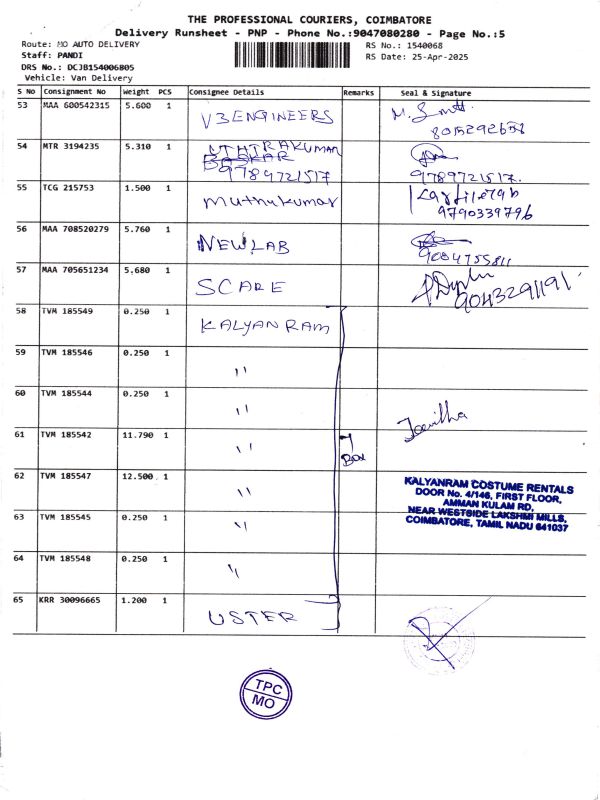 THE PROFESSIONAL COURIERS, COIMBATORE
Delivery Runsheet - PNP - Phone No.:9047080280 - Page No.:5
Route: MO AUTO DELIVERY RS No.: 1540068
Staff: PANDI RS Date: 25-Apr-2025
DRS No.: DCJB154006805
Vehicle: Van Delivery
S No Consignment No Weight PCS Consignee Details Remarks Seal & Signature
53 MAA 600542315 5.600 1 V3ENGINEERS
54 MTR 3194235 5.310 1 MTHTRAKUMAR
BASKAR
9789721517 9789721517.
55 TCG 215753 1.500 1 Muthukumar
9790339796
56 MAA 708520279 5.760 1 NEWLAB
9004755811
57 MAA 705651234 5.680 1 SCARE
9043291191
58 TVM 185549 0.250 1 KALYANRAM
59 TVM 185546 0.250 1 "
60 TVM 185544 0.250 1 "
61 TVM 185542 11.790 1 " 7
Box
62 TVM 185547 12.500 1 "
KALYANRAM COSTUME RENTALS
DOOR No. 4/146, FIRST FLOOR,
AMMAN KULAM RD,
NEAR WESTSIDE LAKSHMI MILLS,
COIMBATORE, TAMIL NADU 641037
63 TVM 185545 0.250 1 "
64 TVM 185548 0.250 1 "
65 KRR 30096665 1.200 1 USTER
TPC
MO